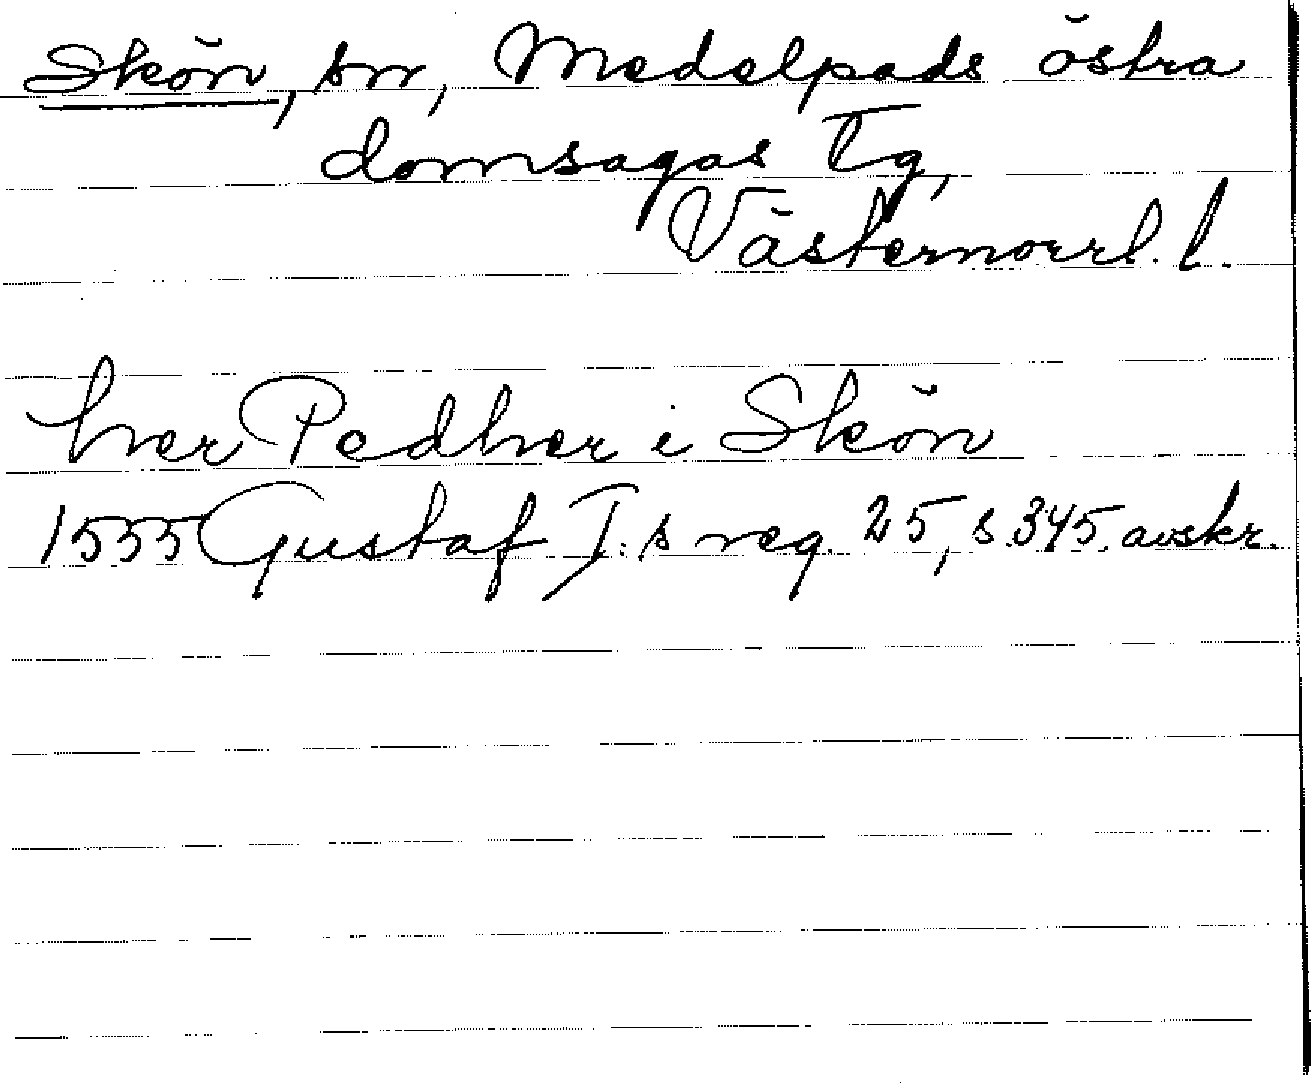 Skön, sn, Medelpads östra
domsagas tg,
Västernorrl. l.
her Pedher i Skön
1555 Gustaf I:s reg. 25, s. 345. avskr.